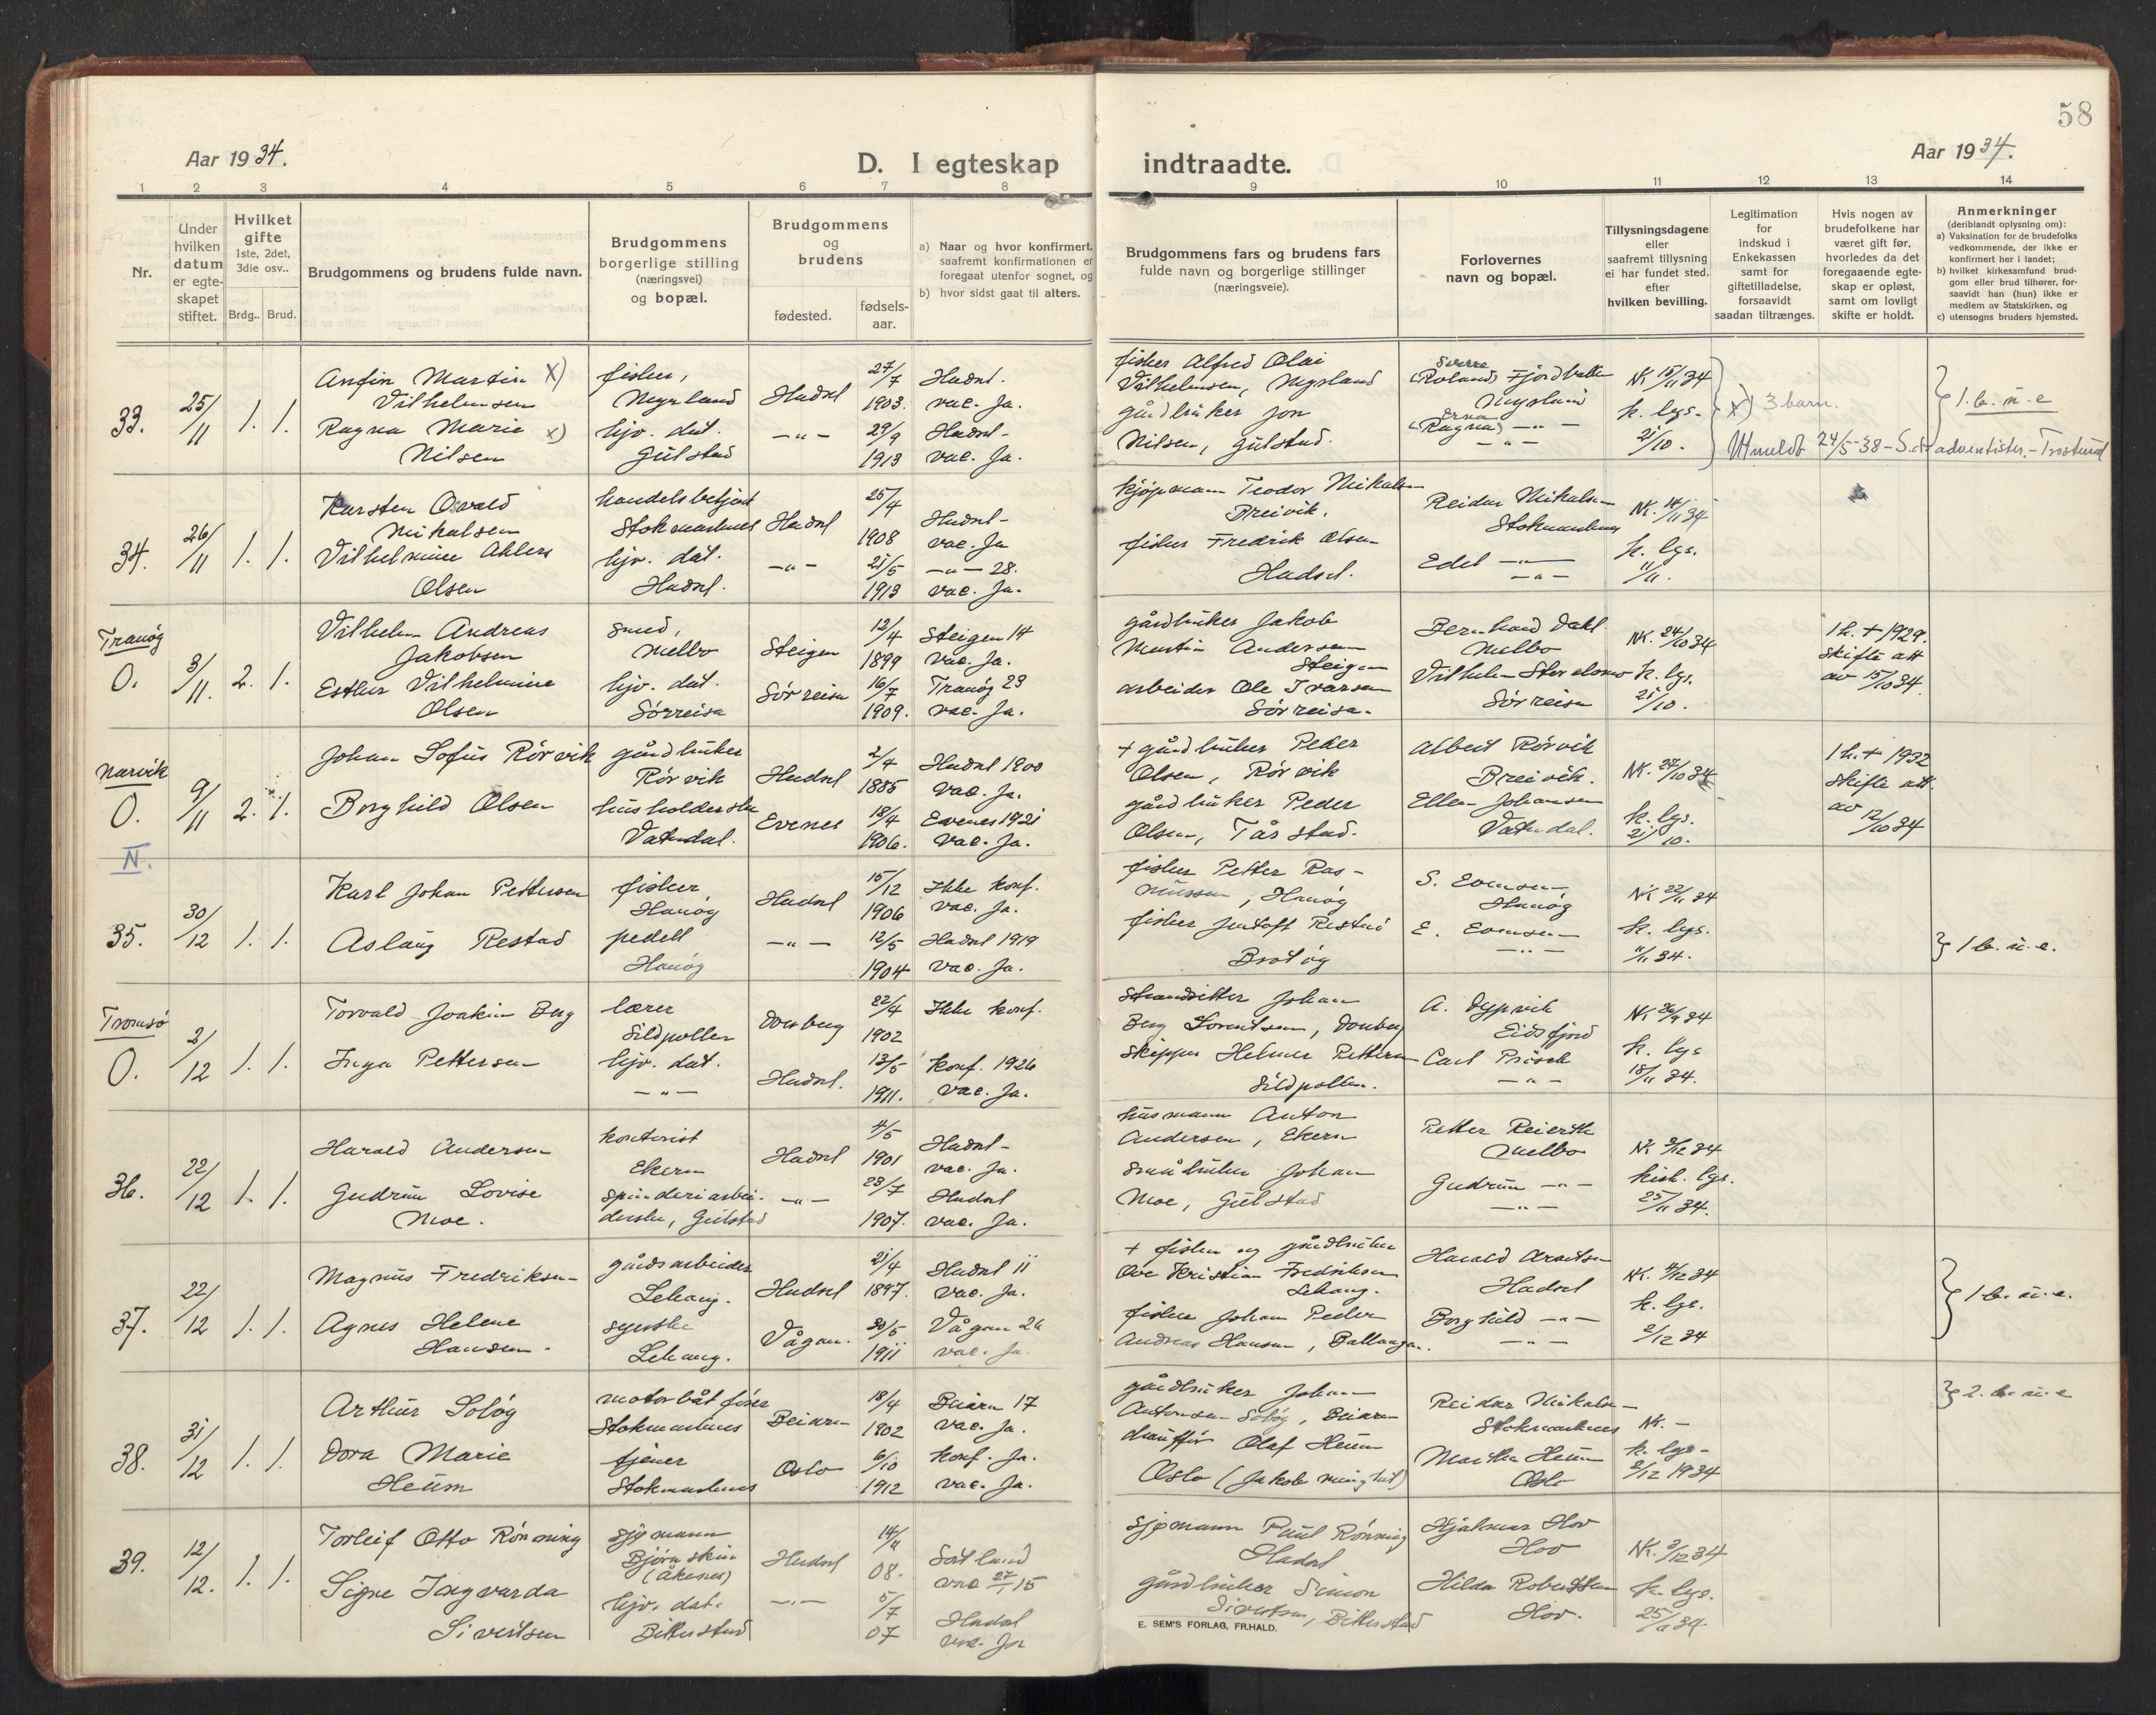 58
Aar 1934.
D. I egteskap indtraadte.
Aar 1934.
1 2 3 4 5 6 7 8 9 10 11 12 13 14
Nr.
Under hvilken datum er egteskapet stiftet.
Hvilket gifte 1ste, 2det, 3die osv..
Brdg.. Brud.
Brudgommens og brudens fulde navn.
Brudgommens borgerlige stilling (næringsvei) og bopæl.
Brudgommens og brudens
fødested.
fødsels-aar.
a) Naar og hvor konfirmert, saafremt konfirmationen er foregaat utenfor sognet, og
b) hvor sidst gaat til alters.
Brudgommens fars og brudens fars fulde navn og borgerlige stillinger (næringsveie).
Forlovernes navn og bopæl.
Tillysningsdagene eller saafremt tillysning ei har fundet sted, efter hvilken bevilling.
Legitimation for indskud i Enkekassen samt for giftetilladelse, forsaavidt saadan tiltrænges.
Hvis nogen av brudefolkene har været gift før, hvorledes da det foregaaende egteskap er opløst, samt om lovligt skifte er holdt.
Anmerkninger (deriblandt oplysning om):
a) Vaksination for de brudefolks vedkommende, der ikke er konfirmert her i landet;
b) hvilket kirkesamfund brudgom eller brud tilhører, forsaavidt han (hun) ikke er medlem av Statskirken, og
c) utensogns bruders hjemsted.
33. 25/11 1. 1.
Anfin Martin x)
Vilhelmsen
fisker,
Myrland
Hadsel
27/7 1903.
Hadsel.
vac. Ja.
fisker Alfred Olai
Vilhelmsen, Myrland
Sverre
(Roland) Fjordbakk
Myrland
NK 15/11 34
k. lys.
21/10.
x) 3 barn.
1. b. u. e
Ragna Marie x)
Nilsen
hjv. dat.
Gulstad
-"-
29/9 1913
Hadsel-
vac. Ja.
gårdbruker Jon
Nilsen, Gulstad.
Erna
(Ragna) -"-
-"-
Utmeldt 24/5-38 - S.d. adventister. - Trostund
34. 26/11 1. 1.
Karsten Osvald
Mikalsen
handelsbetjent
Stokmarknes
Hadsel
25/4 1908
Hadsel-
vac. Ja
kjøpmann Teodor Mikalsen
Breivik.
Reidar Mikalsen
Stokmarknes
NK. 14/11 34
k. lys.
11/11.
Vilhelmine Ahlers
Olsen
hjv. dat.
Hadsel.
-"-
21/5 1913
-"- 28.
vac. Ja.
fisker Fredrik Olsen
Hadsel.
Edel -"-
-"-
Tranöy
O. 3/11. 2. 1.
Vilhelm Andreas
Jakobsen
smed,
Melbo
Steigen
12/4 1899
Steigen 14
vac. Ja.
gårdbruker Jakob
Martin Andersen
Steigen
Bernhard Dahl
Melbo
NK. 24/10 34
k. lys.
21/10.
1 h. + 1929.
Skifte att
av 15/10 34.
Esther Vilhelmine
Olsen
hjv. dat.
Sörreisa
Sörreisa
16/7 1909.
Tranöy 23
vac. Ja.
arbeider Ole Ivarsen
Sörreisa.
Sörreisa
Narvik
O. 9/11 2. 1.
Johan Sofus Rörvik
gårdbruker
Rörvik
Hadsel
2/4 1885
Hadsel 1900
vac. Ja.
+ gårdbruker Peder
Olsen, Rörvik
Albert Rörvik
Breivik.
NK. 27/10 34
k. lys.
21/10.
1 h. + 1932
Skifte att.
av 12/10 34
Borghild Olsen
husholderske
Vatndal.
Evenes
18/4 1906.
Evenes 1921
vac. Ja.
gårdbruker Peder
Olsen, Tårstad.
Ellen Johansen
Vatndal.
N.
35. 30/12 1. 1.
Karl Johan Pettersen
fisker
Hanöy
Hadsel
15/12 1906
Ikke konf.
vac. Ja.
fisker Petter Rasmussen, Hanöy
S. Evensen
Hanöy
NK 22/11 34
k. lys.
11/11 34.
1 b. u. e.
Aslaug Restad
pedell
Hanöy
-"-
12/5 1904
Hadsel 1919
vac. Ja.
fisker Jentoft Restad
Brotöy
E. Evensen
-"-
Tromsö
O. 2/12 1. 1.
Torvald Joakim Berg
lærer
Sildpollen
Dverberg
22/4 1902
Ikke konf.
strandsitter Johan
Berg Lorentsen, Dverberg
A. Dypvik
Eidsfjord
NK 26/9 34
k. lys
18/11 34.
Inga Pettersen
hjv. dat.
-"-
Hadsel.
13/5 1911.
Konf. 1926
vac. Ja.
skipper Helmer Pettersen
Sildpollen.
Carl Prösch
-"-
36. 22/12 1. 1.
Harald Andersen
kontorist
Ekern
Hadsel
4/5 1901
Hadsel-
vac. Ja.
husmann Anton
Andersen, Ekern
Petter Reiersth
Melbo
NK 3/12 34
kirk. lys.
25/11 34.
Gudrun Lovise
Moe.
spinderiarbeiderske, Gulstad
-"-
23/7 1907.
Hadsel
vac. Ja.
småbruker Johan
Moe, Gulstad
Gudrun -"-
-"-
37. 22/12 1. 1.
Magnus Fredriksen
gårdsarbeider
Lekang.
Hadsel
21/4 1897.
Hadsel 11
vac. Ja.
+ fisker og gårdbruker
Ove Kristian Fredriksen
Lekang.
Harald Arntsen
Hadsel
NK. 4/12 34
k. lys.
2/12 34
1 b. u. e.
Agnes Helene
Hansen.
syerske
Lekang.
Vågan.
30/5 1911
Vågan 26
vac. Ja
fisker Johan Peder
Andreas Hansen, Ballangen.
Borghild -"-
-"-
38. 31/12 1. 1.
Arthur Solöy
motorbåtförer
Stokmarknes
Beiarn
18/4 1902
Beiarn 17
vac. Ja.
gårdbruker Johan
Antonsen Solöy, Beiarn
Reidar Mikalsen
Stokmarknes
NK. -
k. lys-
2/12 1934
2. b. u. e
Dora Marie
Heum
tjener
Stokmarknes
Oslo
6/10 1912
Konf. Ja.
vac. Ja.
Olaf Heum
Oslo
Martha Heum
Oslo
39. 12/12. 1. 1.
Torleif Otto Rönning
sjömann
Björnskin
(Åkenes)
Hadsel
14/11 08.
Sortland
vac 27/1 15
sjömann Paul Rönning
Hadsel
Hjalmar Hov
Hov
NK. 3/12 34
k. lys.
25/11 34
Signe Ingvarda
Sivertsen
hjv. dat.
Bitterstad
-"-
5/7 07
Hadsel
vac. Ja
gårdbruker Simon
Sivertsen, Bitterstad
Hilda Robertsen
Hov.
E. SEM'S FORLAG, FR.HALD.